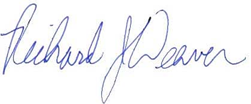 Richard J Weaver